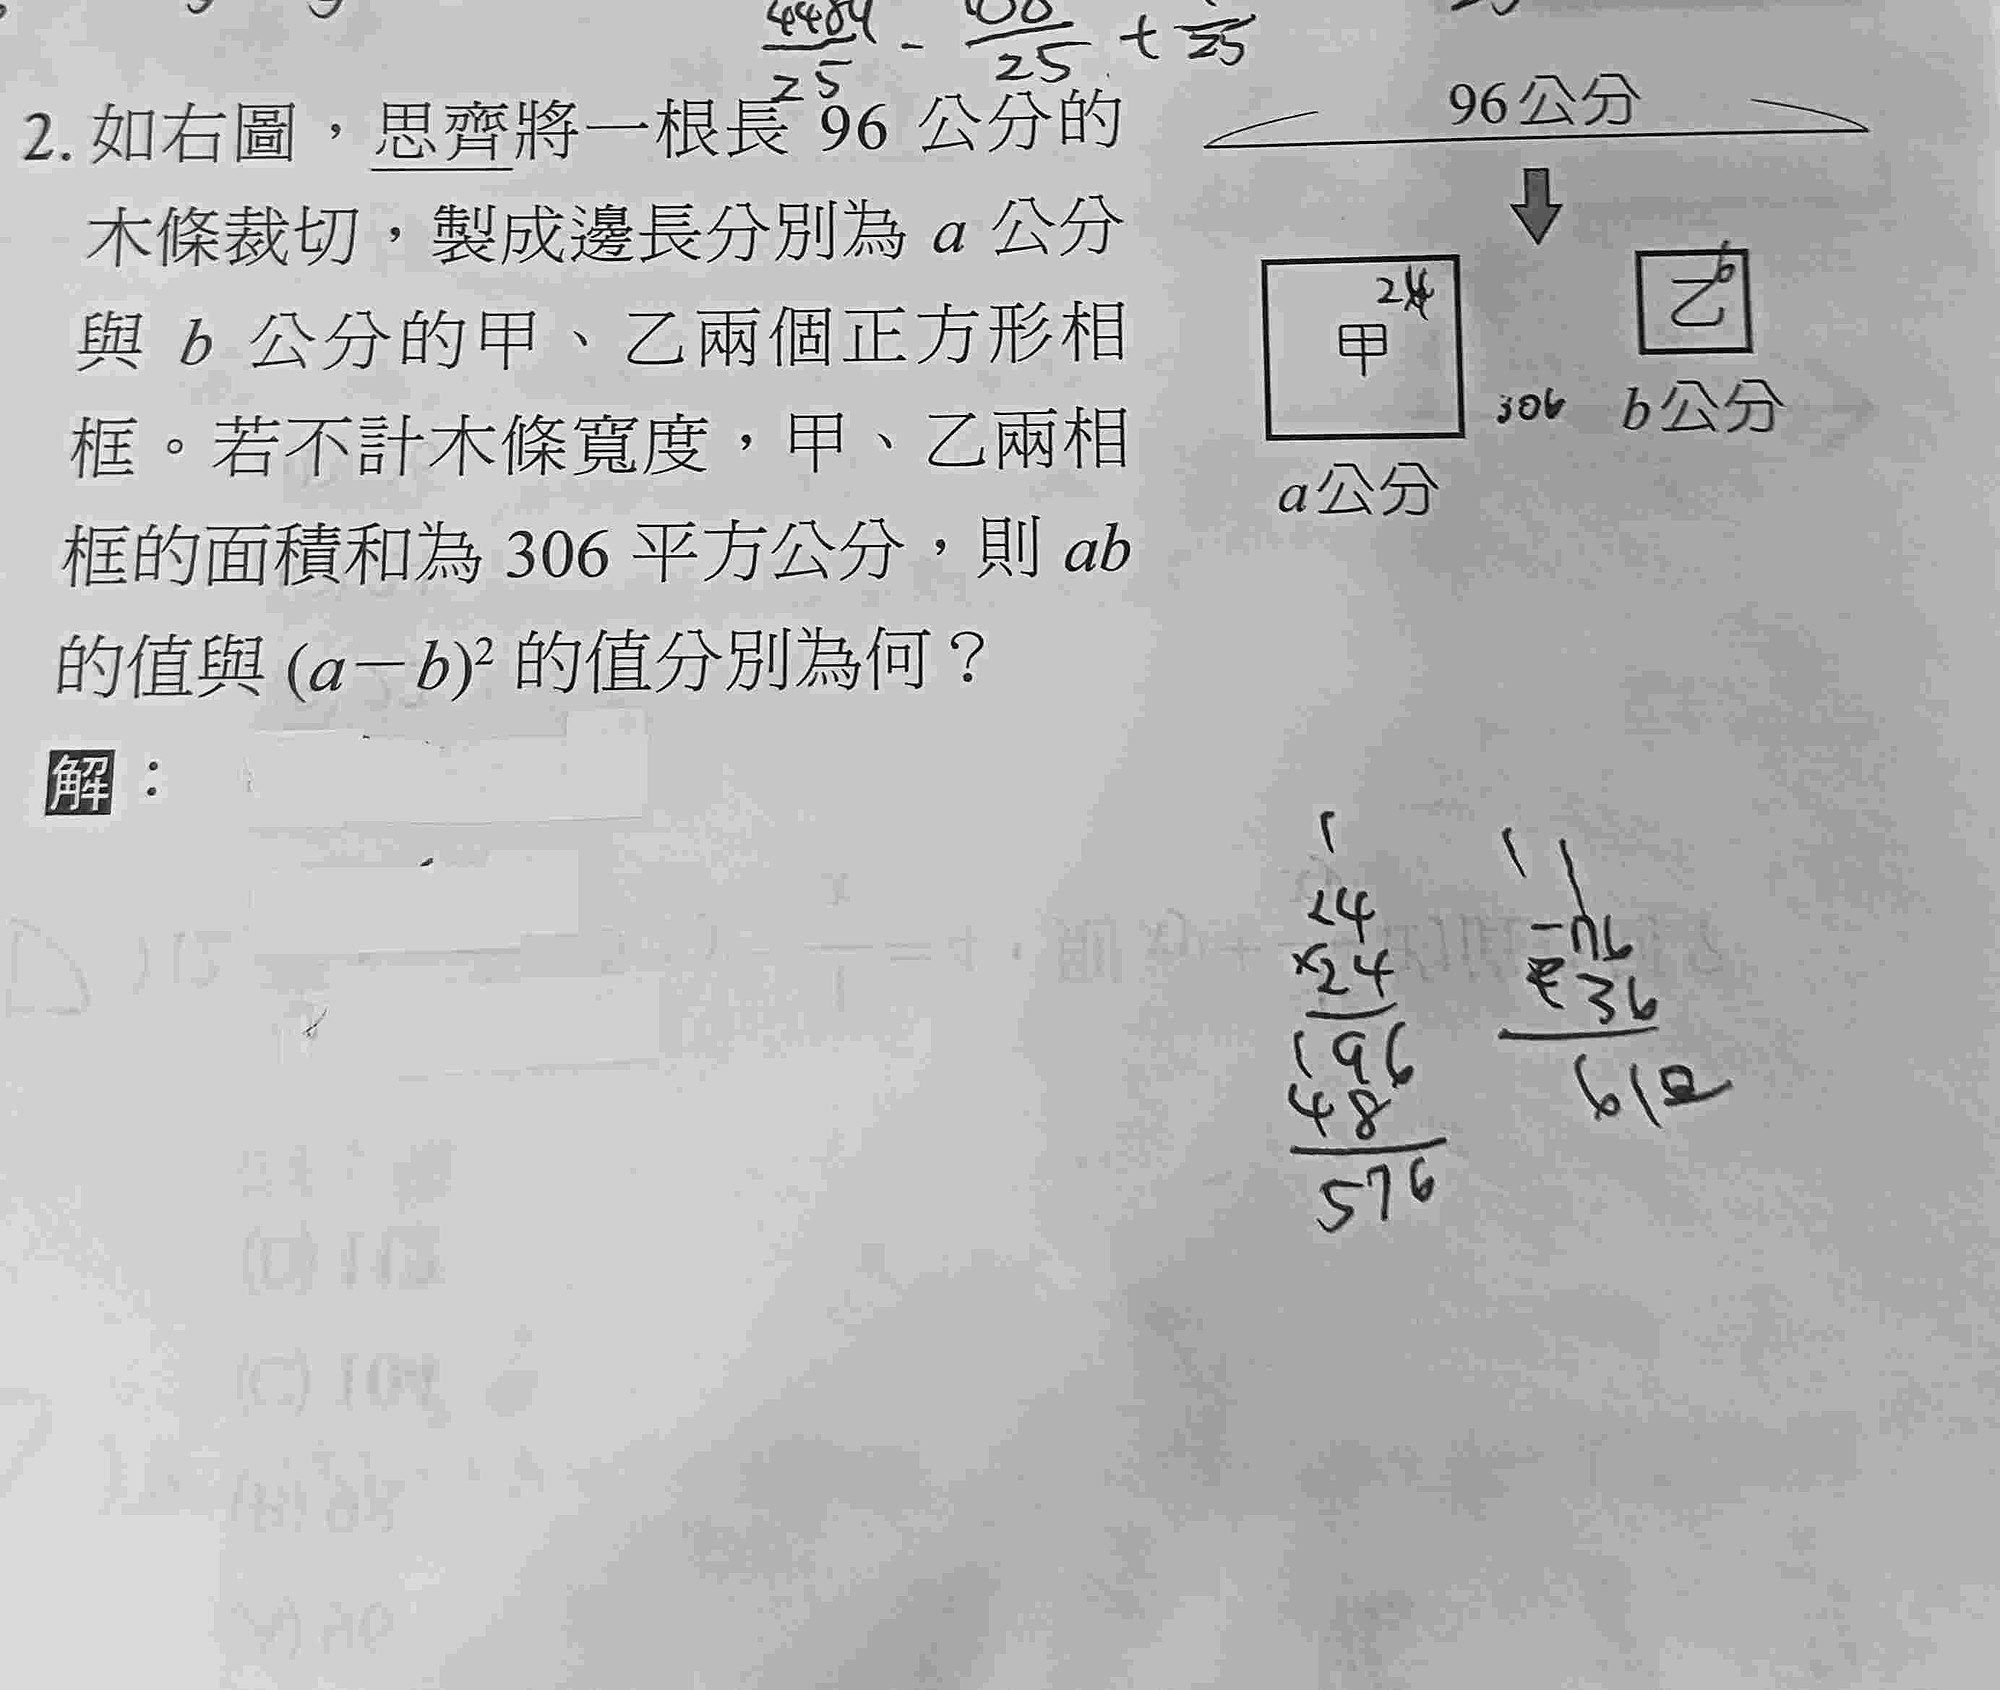 4484/25 - 100/25 + /25
2. 如右圖，思齊將一根長 96 公分的
木條裁切，製成邊長分別為 a 公分
與 b 公分的甲、乙兩個正方形相
框。若不計木條寬度，甲、乙兩相
框的面積和為 306 平方公分，則 ab
的值與 (a－b)² 的值分別為何？
96公分
24
甲
a公分
306
6
乙
b公分
解：
1
24
×24
196
48
576
1 1
36
612